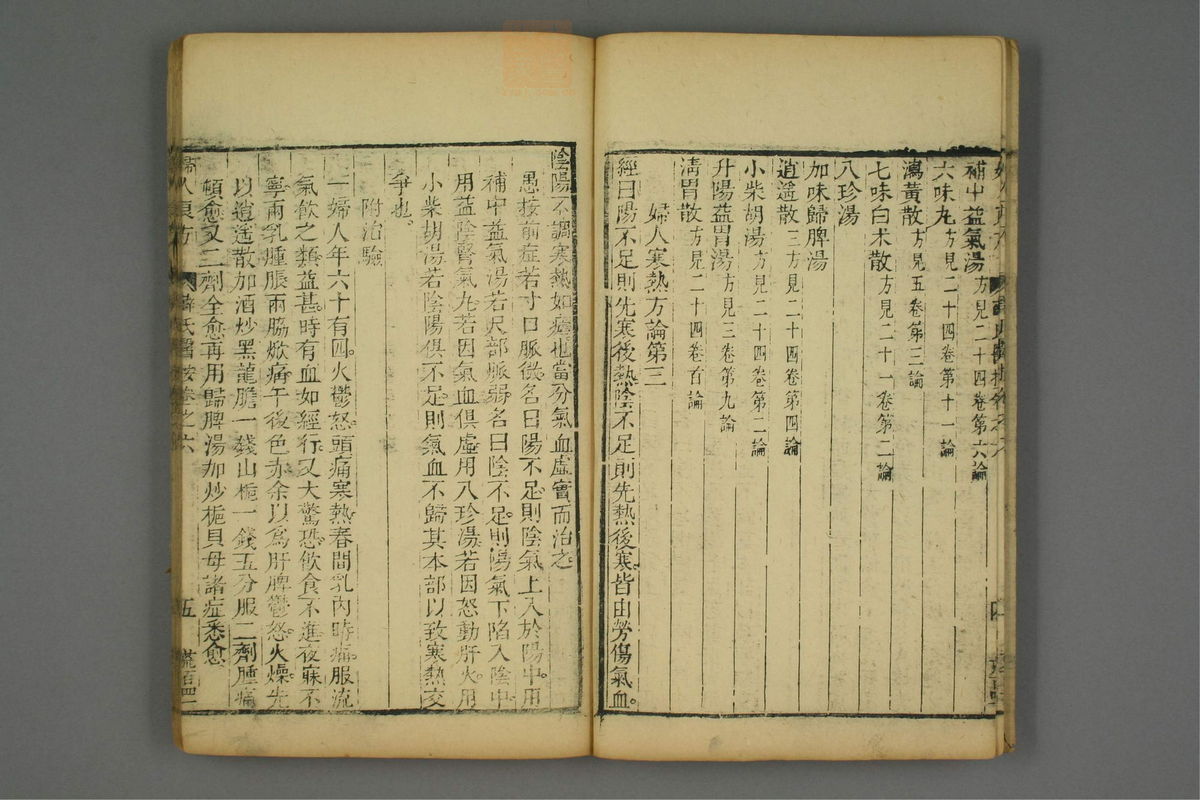 補中益氣湯方見二十四卷第六論
六味丸方見二十四卷第十一論
瀉黃散方見五卷第三論
七味白术散方見二十一卷第二論
八珍湯
加味歸脾湯
逍遥散三方見二十四卷第四論
小柴胡湯方見二十四卷第二論
升陽益胃湯方見三卷第九論
清胃散方見二十四卷百論
婦人寒熱方論第三
經曰陽不足則先寒後熱陰不足則先熱後寒皆由勞傷氣血
陰陽不調寒熱如瘧也當分氣血虛實而治之
愚按前症若寸口脈微名曰陽不足則陰氣上入於陽中用
補中益氣湯若尺部脈弱名曰陰不足則陽氣下陷入陰中
用益陰腎氣丸若因氣血俱虛用八珍湯若因怒動肝火用
小柴胡湯若陰陽俱不足則氣血不歸其本部以致寒熱交
爭也
附治驗
一婦人年六十有四火鬱怒頭痛寒熱春間乳內時痛服流
氣飲之類益甚時有血如經行又大驚恐飲食不進夜寐不
寧兩乳腫脹兩脇焮痛午後色亦余以爲肝脾鬱怒火燥先
以逍遥散加酒炒黑龍膽一錢山梔一錢五分服二劑腫痛
頓愈又二劑全愈再用歸脾湯加炒梔貝母諸症悉愈
婦人良方 薛氏醫按卷之六 五